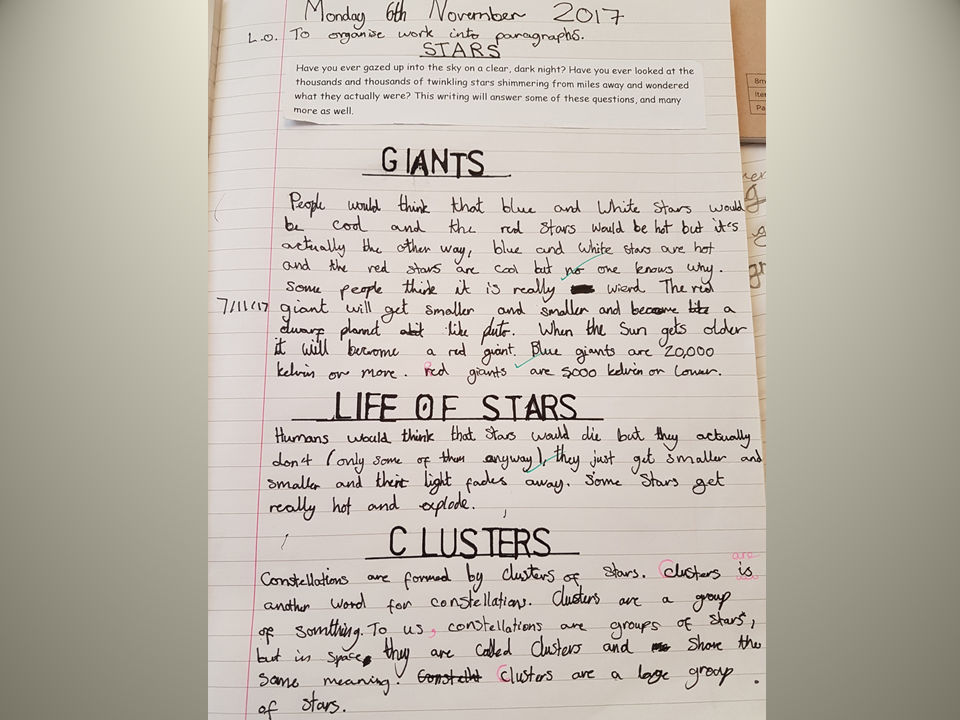 Monday 6th November 2017
L.O. To organise work into paragraphs.
STARS
Have you ever gazed up into the sky on a clear, dark night? Have you ever looked at the
thousands and thousands of twinkling stars shimmering from miles away and wondered
what they actually were? This writing will answer some of these questions, and many
more as well.
GIANTS
People would think that blue and White Stars would
be cool and the red stars would be hot but it's
actually the other way, blue and white stars are hot
and the red stars are cool but no one knows why.
Some people think it is really wierd The red
7/11/17 giant will get smaller and smaller and become like a
dwarf planet like pluto. When the Sun gets older
it will become a red giant. Blue giants are 20,000
kelvin or more. Red giants are 5000 kelvin or lower.
LIFE OF STARS
Humans would think that Stars would die but they actually
don't (only some of them anyway), they just get smaller and
smaller and their light fades away. Some Stars get
really hot and explode.
CLUSTERS
are
Constellations are formed by clusters of stars. Clusters is
another word for constellations. Clusters are a group
of something. To us, constellations are groups of stars,
but in space they are called Clusters and Share the
same meaning. Clusters are a large group
of stars.
8m
Ite
Pa